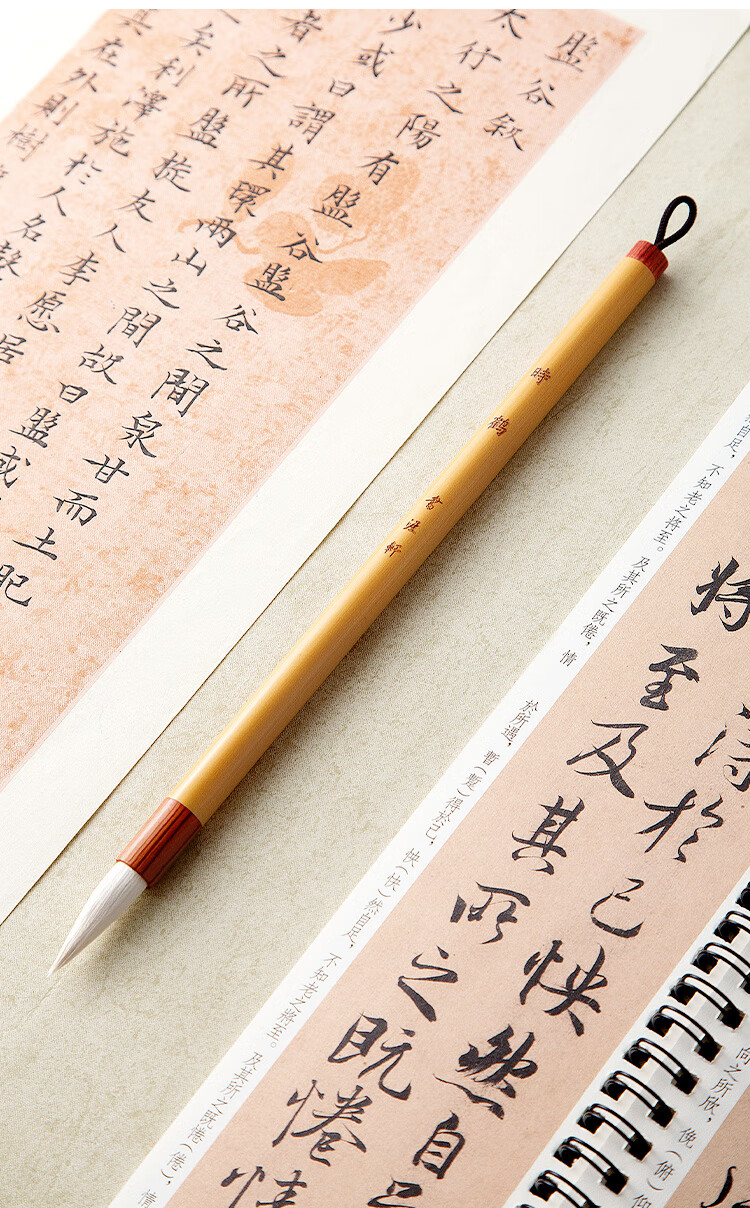 盤谷叙
太行之陽有盤谷盤谷之間泉甘而土肥
少或曰謂其環兩山之間故曰盤或
者之所盤旋友人李愿居
之矣利澤施於人名聲
其在外則樹
時鶴
自足，不知老之將至。及其所之既倦，情
於所遇，暫（蹔）得於己，怏（快）然自足，不知老之將至。及其所之既惓（倦），情
得於己怏然自足
將至及其所之既惓情
向之所欣，俛（俯）仰